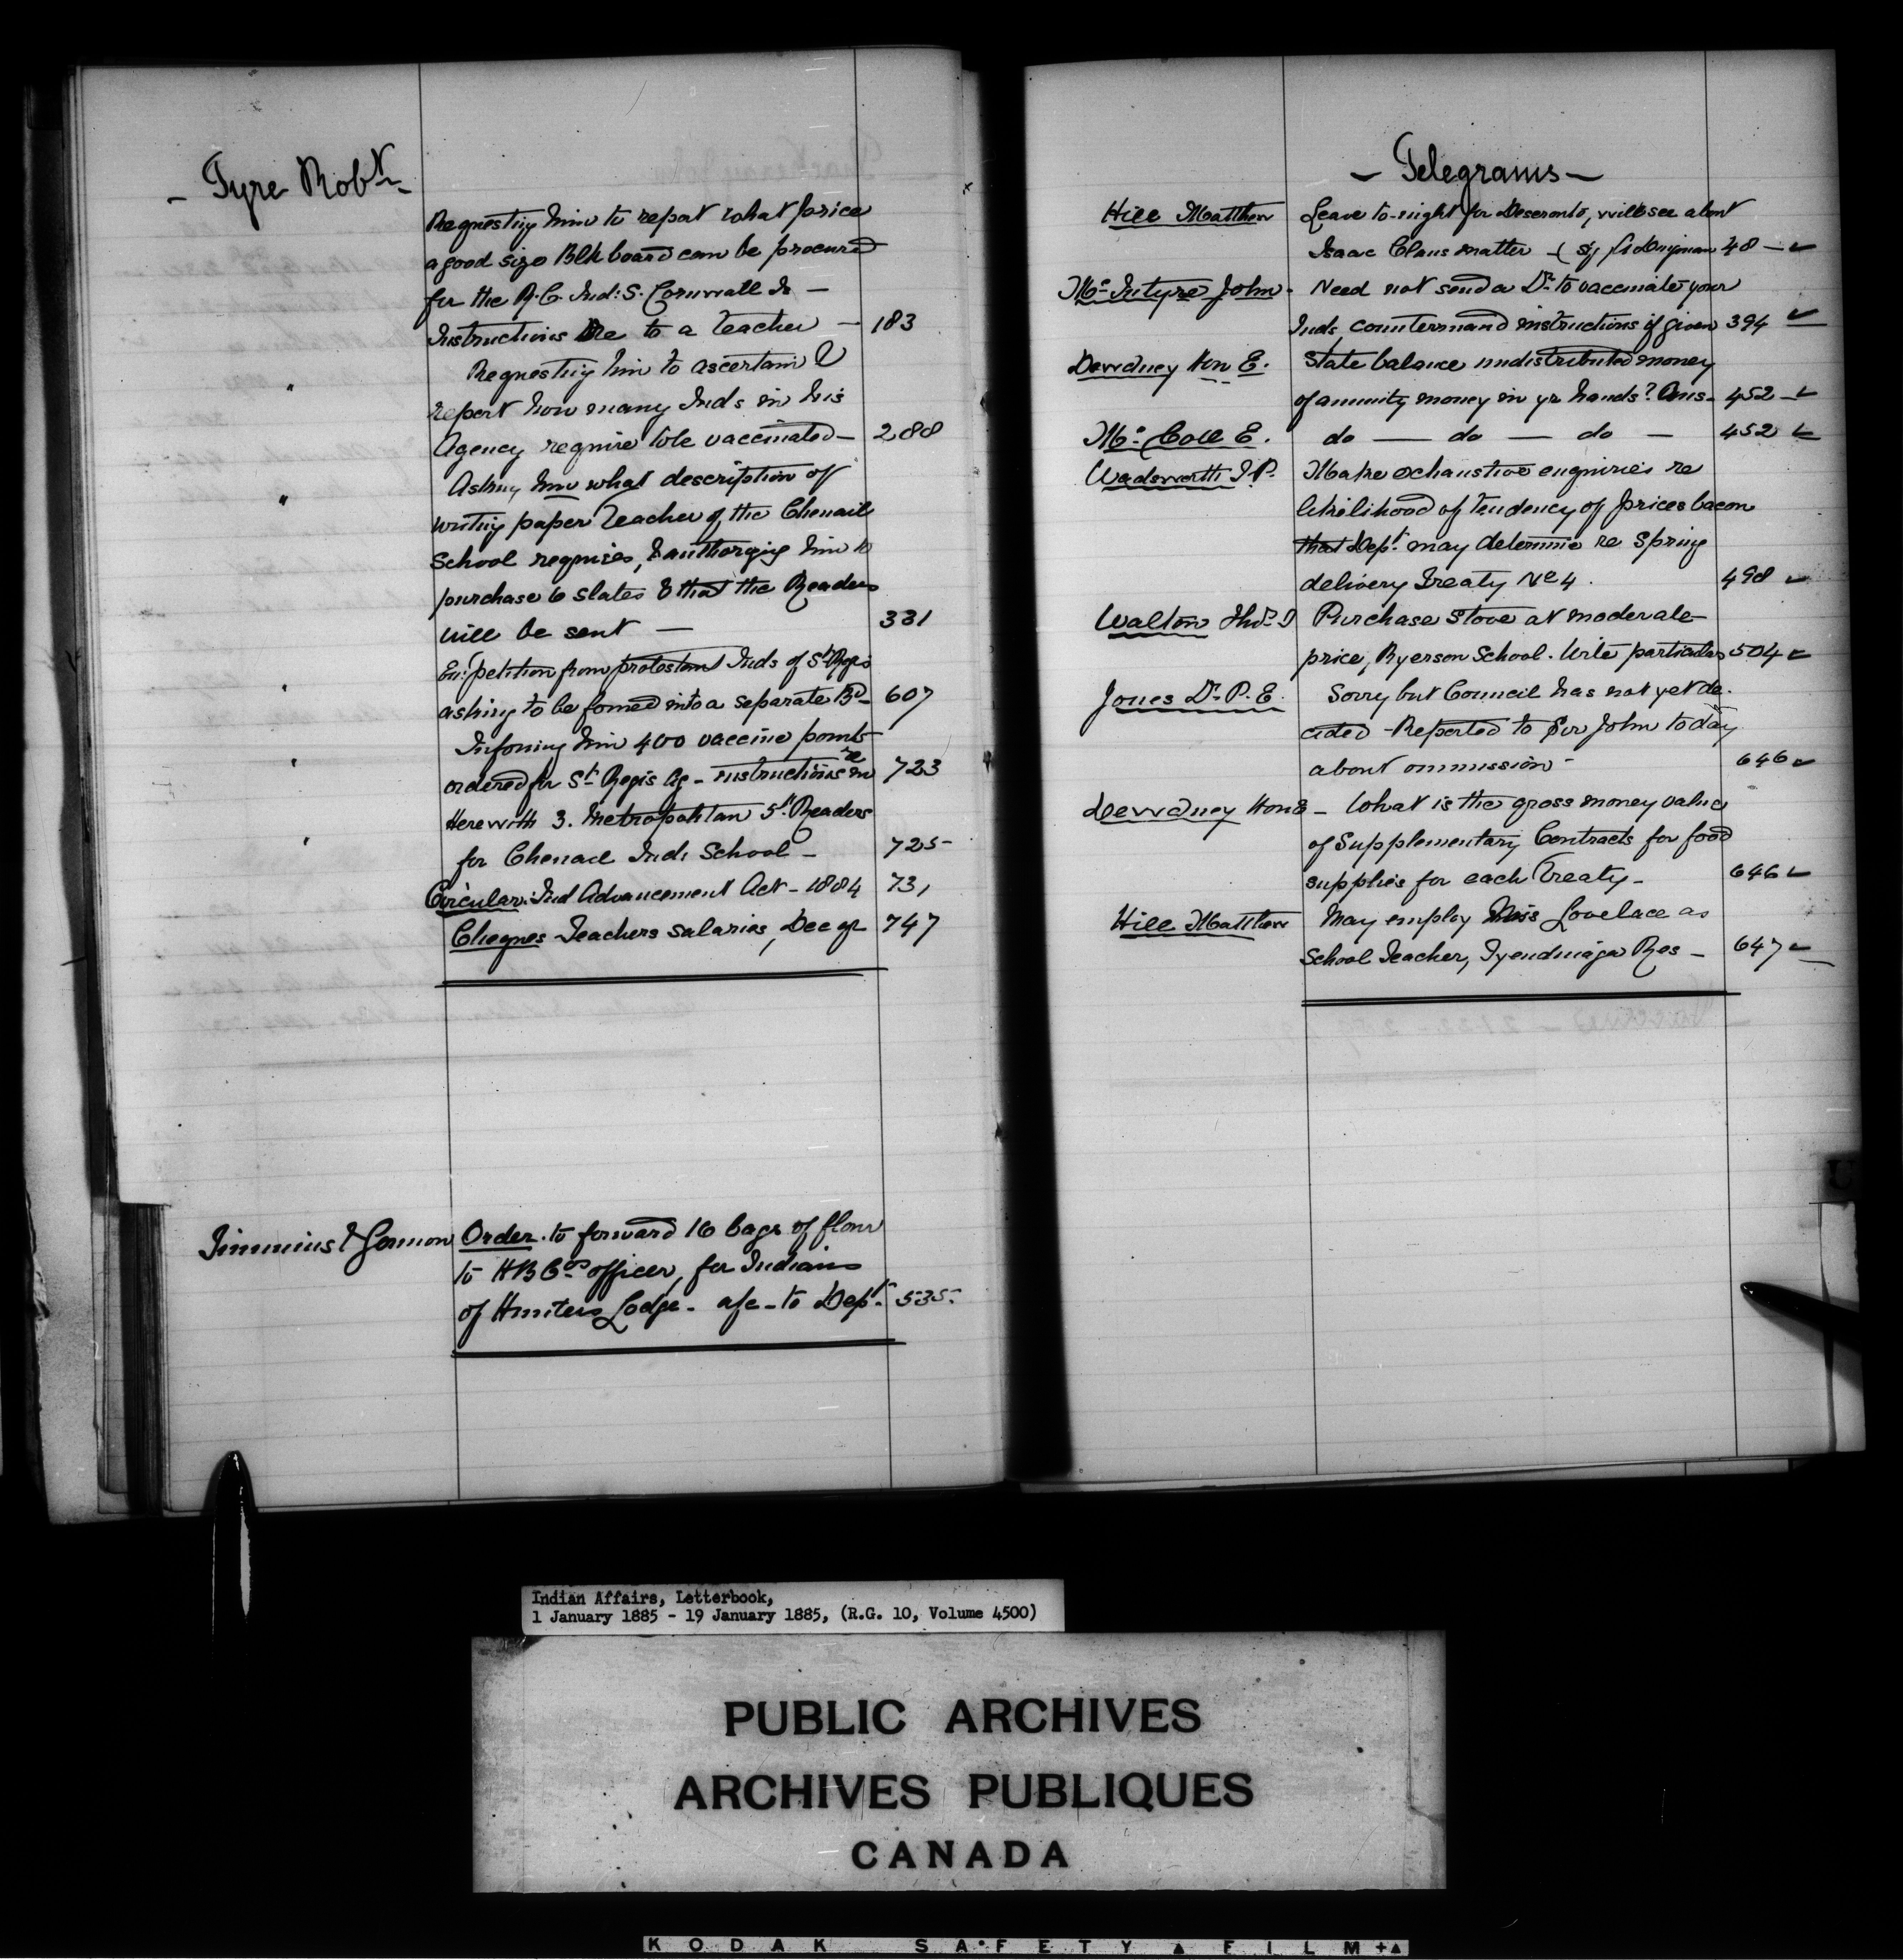 - Tyre Robt -
Requesting him to report what price
a good size Blk board can be procured
for the R.C. Ind: S. Cornwall Is -
Instructions re to a teacher - 183
" Requesting him to ascertain &
report how many Inds in his
Agency require to be vaccinated - 288
" Asking him what description of
writing paper Teacher of the Chenail
School requires, & authorizing him to
purchase 6 slates & that the Readers
will be sent - 331
" En: petition from protestant Inds of St Regis
asking to be formed into a separate Bd - 607
" Informing him 400 vaccine points
ordered for St Regis Ag - instructions re 723
" Herewith 3. Metropolitan 5th Readers
for Chenail Ind: School - 725
Circular: Ind Advancement Act - 1884 731
Cheques Teachers salaries, Dec qr 747
Timmins & Gorman Order. to forward 16 bags of flour
to H B Cos officer, for Indians
of Hunters Lodge - a/c - to Dept. 535
- Telegrams -
Hill Matthew Leave to-night for Deseronto, will see about
Isaac Claus matter - ( sg 48 -
Mc Intyre John - Need not send a Dr. to vaccinate your
Inds, countermand instructions if given 394
Dewdney Hon E. State balance undistributed money
of annuity money in yr hands? Ans - 452 -
Mc Coll E. do — do — do — 452
Wadsworth T.P. Make exhaustive enquiries re
likelihood of tendency of prices bacon
that Dept. may determine re Spring
delivery Treaty No 4. 498
Walton Thos. S Purchase Stove at moderate
price, Ryerson School. Write particulars 504
Jones Dr. P. E. Sorry but Council has not yet de-
cided - Reported to Sir John today
about ommission - 646
Dewdney Hon E - What is the gross money value
of Supplementary Contracts for food
supplies for each Treaty - 646
Hill Matthew May employ Miss Lovelace as
School Teacher, Tyendinaga Res - 647
Indian Affairs, Letterbook,
1 January 1885 - 19 January 1885, (R.G. 10, Volume 4500)
PUBLIC ARCHIVES
ARCHIVES PUBLIQUES
CANADA
KODAK SAFETY FILM